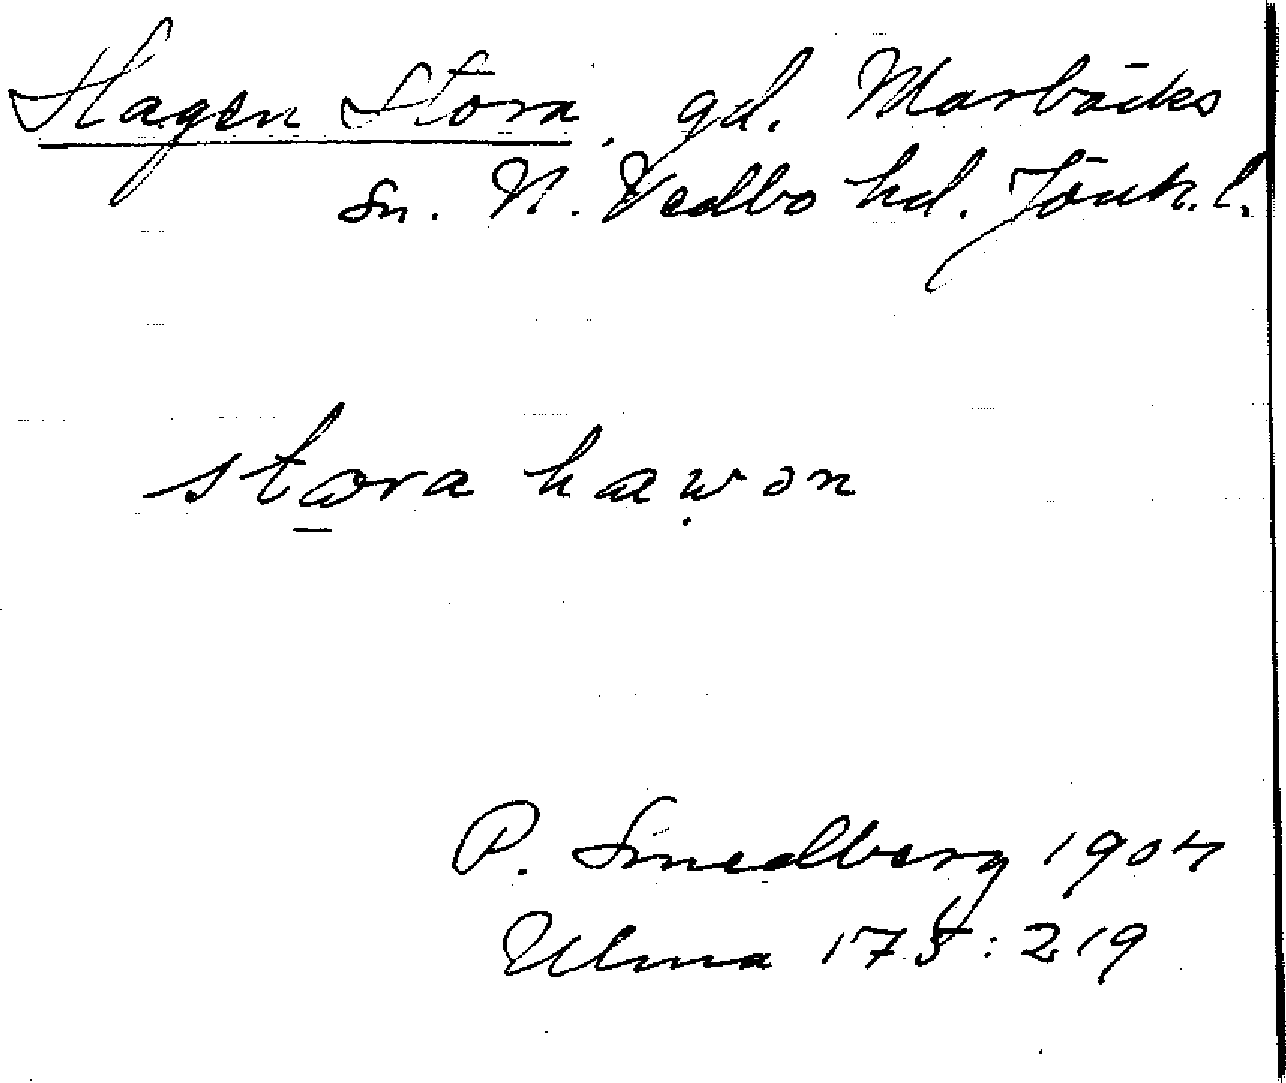 Hagen Stora. gd. Marbäcks
sn. N. Vedbo hd. Jönk. l.
stora hawən
P. Smedberg 1904
Ulma 175:219